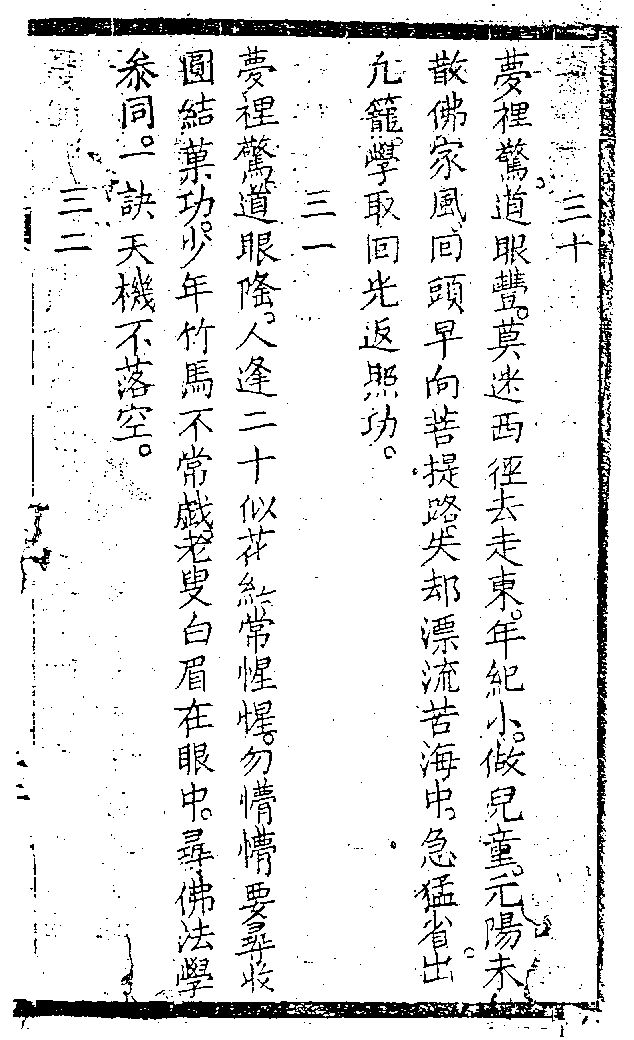 三十
夢裡驚。道眼豐。莫迷西徑去走東。年紀小。做兒童。元陽未
散佛家風。回頭早向菩提路。失却漂流苦海中。急猛省。出
凡籠。學取回光返照功。
三一
夢裡驚。道眼隆。人逢二十似花紅。常惺惺。勿懵懵。要尋收
圓結菓功。少年竹馬不常戲。老叟白眉在眼中。尋佛法。學
叅同。一訣天機不落空。
三二